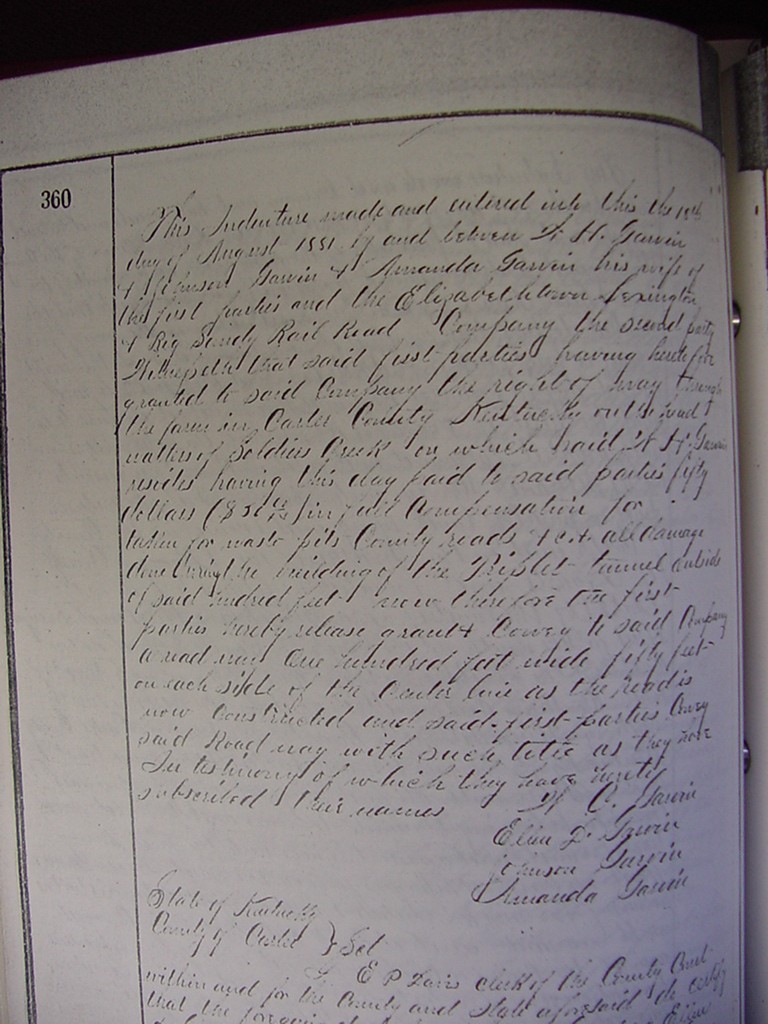 360
This Indenture made and entered into this the 10th
day of August 1881 by and between W H. Garvin
& Johnson Garvin & Amanda Garvin his wife of
the first parties and the Elizabethtown Lexington
& Big Sandy Rail Road Company the second party
Witnesseth that said first parties having heretofore
granted to said Company the right of way through
the farm in Carter County Kentucky on the head
waters of Soldiers Creek on which said W H. Garvin
resides having this day paid to said parties fifty
dollars ($50 00/100) in full Compensation for
taken for waste pits County roads &c & all damage
done during the building of the Triplet tunnel outside
of said hundred feet now therefore the first
parties hereby release grant & Convey to said Company
a road way One hundred feet wide fifty feet
on each side of the Center line as the Road is
now Constructed and said first parties Convey
said Road way with such title as they have
In testimony of which they have hereto
subscribed their names W C. Garvin
D. Garvin
Johnson Garvin
Amanda Garvin
State of Kentucky
County of Carter } Sct
I E P Davis clerk of the County Court
within and for the County and State aforesaid do certify
that the foregoing